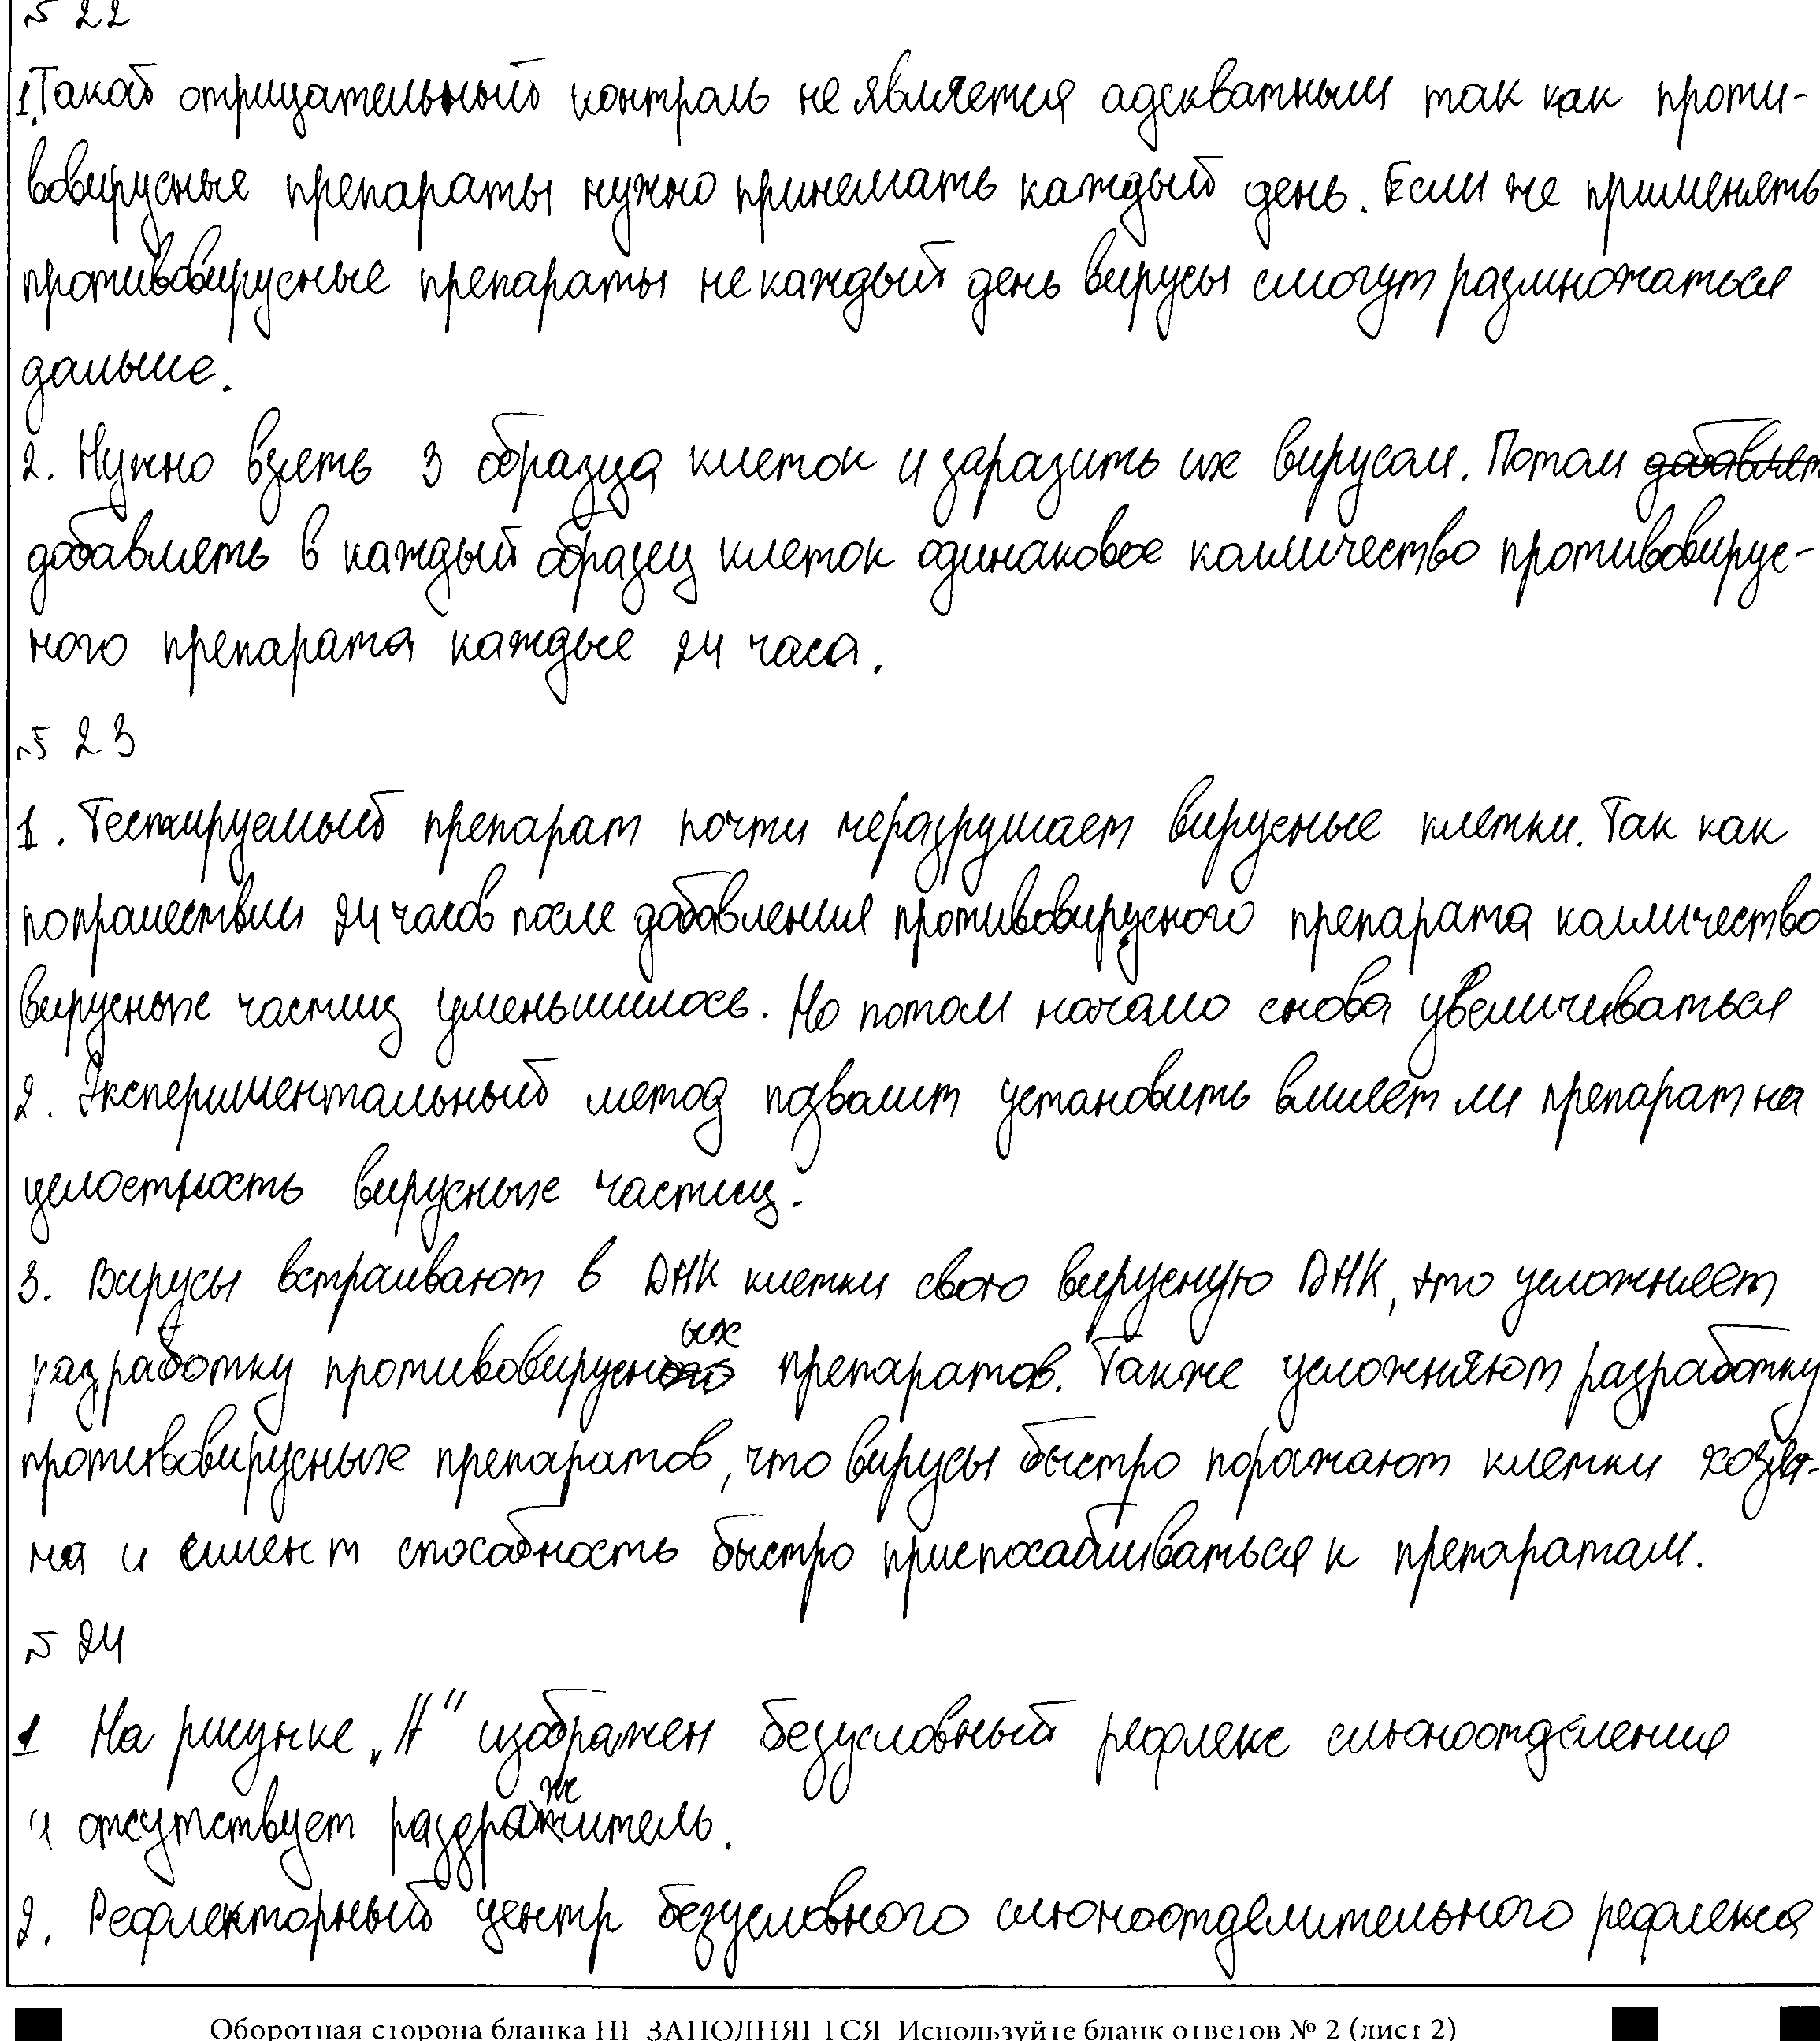 № 22
1. Такой отрицательный контроль не является адекватным так как проти-
вовирусные препараты нужно принемать каждый день. Если же применять
противовирусные препараты не каждый день вирусы смогут размножаться
дальше.
2. Нужно взять 3 образца клеток и заразить их вирусом. Потом добавлят
добавлять в каждый образец клеток одинаковое колличество противовирус-
ного препарата каждые 24 часа.
№ 23
1. Тестируемый препарат почти неразрушает вирусные клетки. Так как
попрошествии 24 часов после добавления противовирусного препарата колличество
вирусных частиц уменьшилось. Но потом начало снова увеличиваться
2. Экспериментальный метод позволит установить влияет ли препарат на
целостность вирусных частиц.
3. Вирусы встраивают в ДНК клетки свою вирусную ДНК, это усложняет
разработку противовирусных препаратов. Также усложняют разработку
противовирусных препаратов, что вирусы быстро поражают клетки хозя-
на и имеют способность быстро приспосабливаться к препаратам.
№ 24
1 На рисунке „А" изображен безусловный рефлекс слюноотделения
и отсутствует раздражитель.
2. Рефлекторный центр безусловного слюноотделительного рефлекса
Оборотная сторона бланка НЕ ЗАПОЛНЯЕТСЯ Используйте бланк ответов № 2 (лист 2)